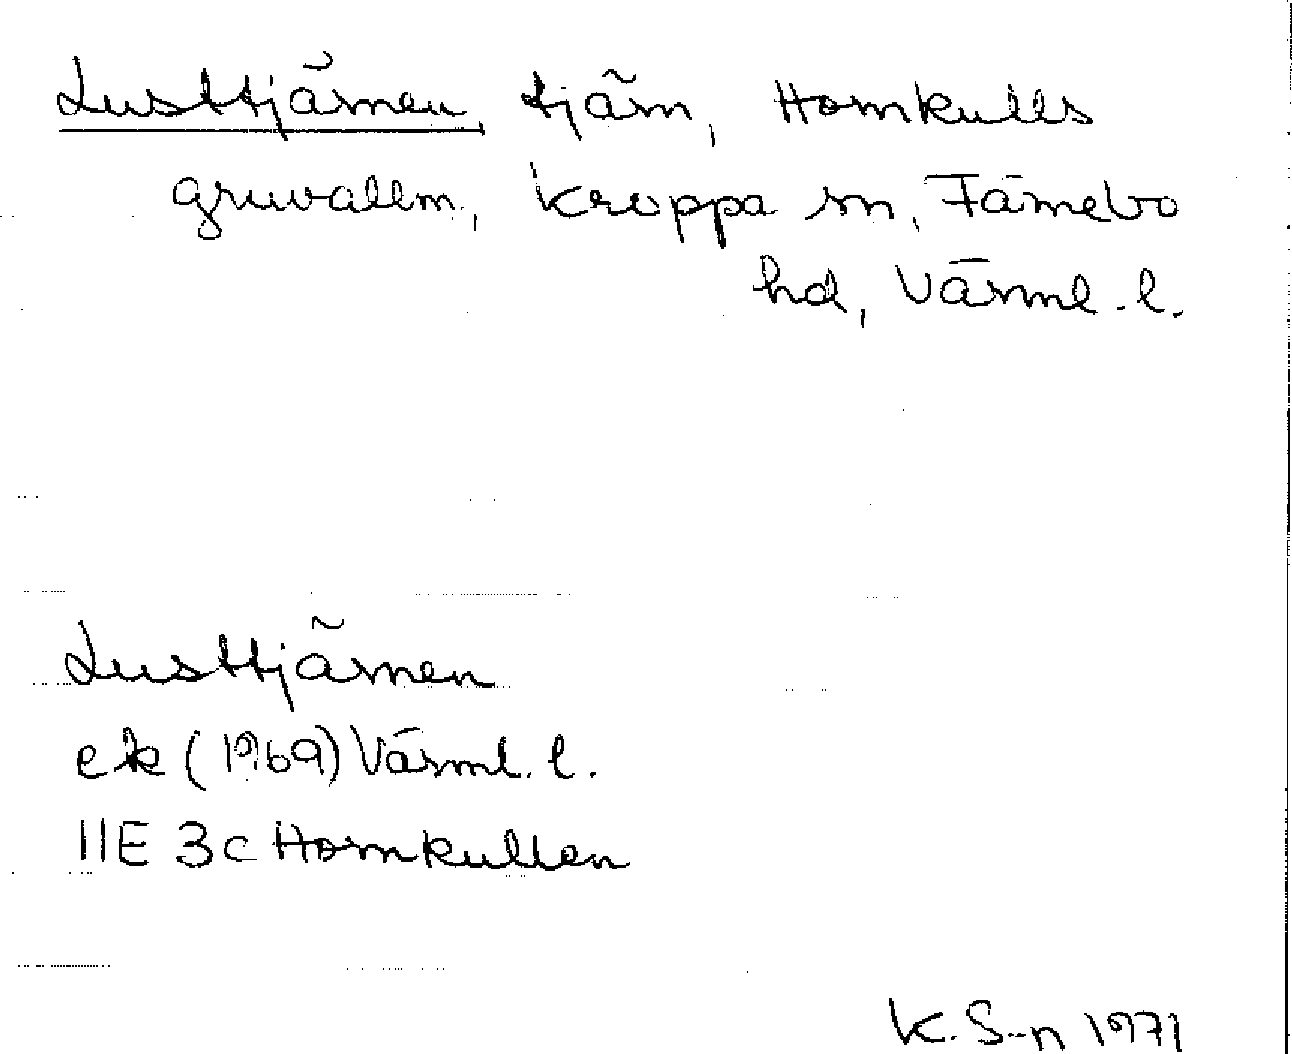 Lusttjärnen, tjärn, Hornkulls
gruvallm., Kroppa sn, Färnebo
hd, Värml. l.
Lusttjärnen
ek (1969) Värml. l.
11E 3c Hornkullen
K. S-n 1971